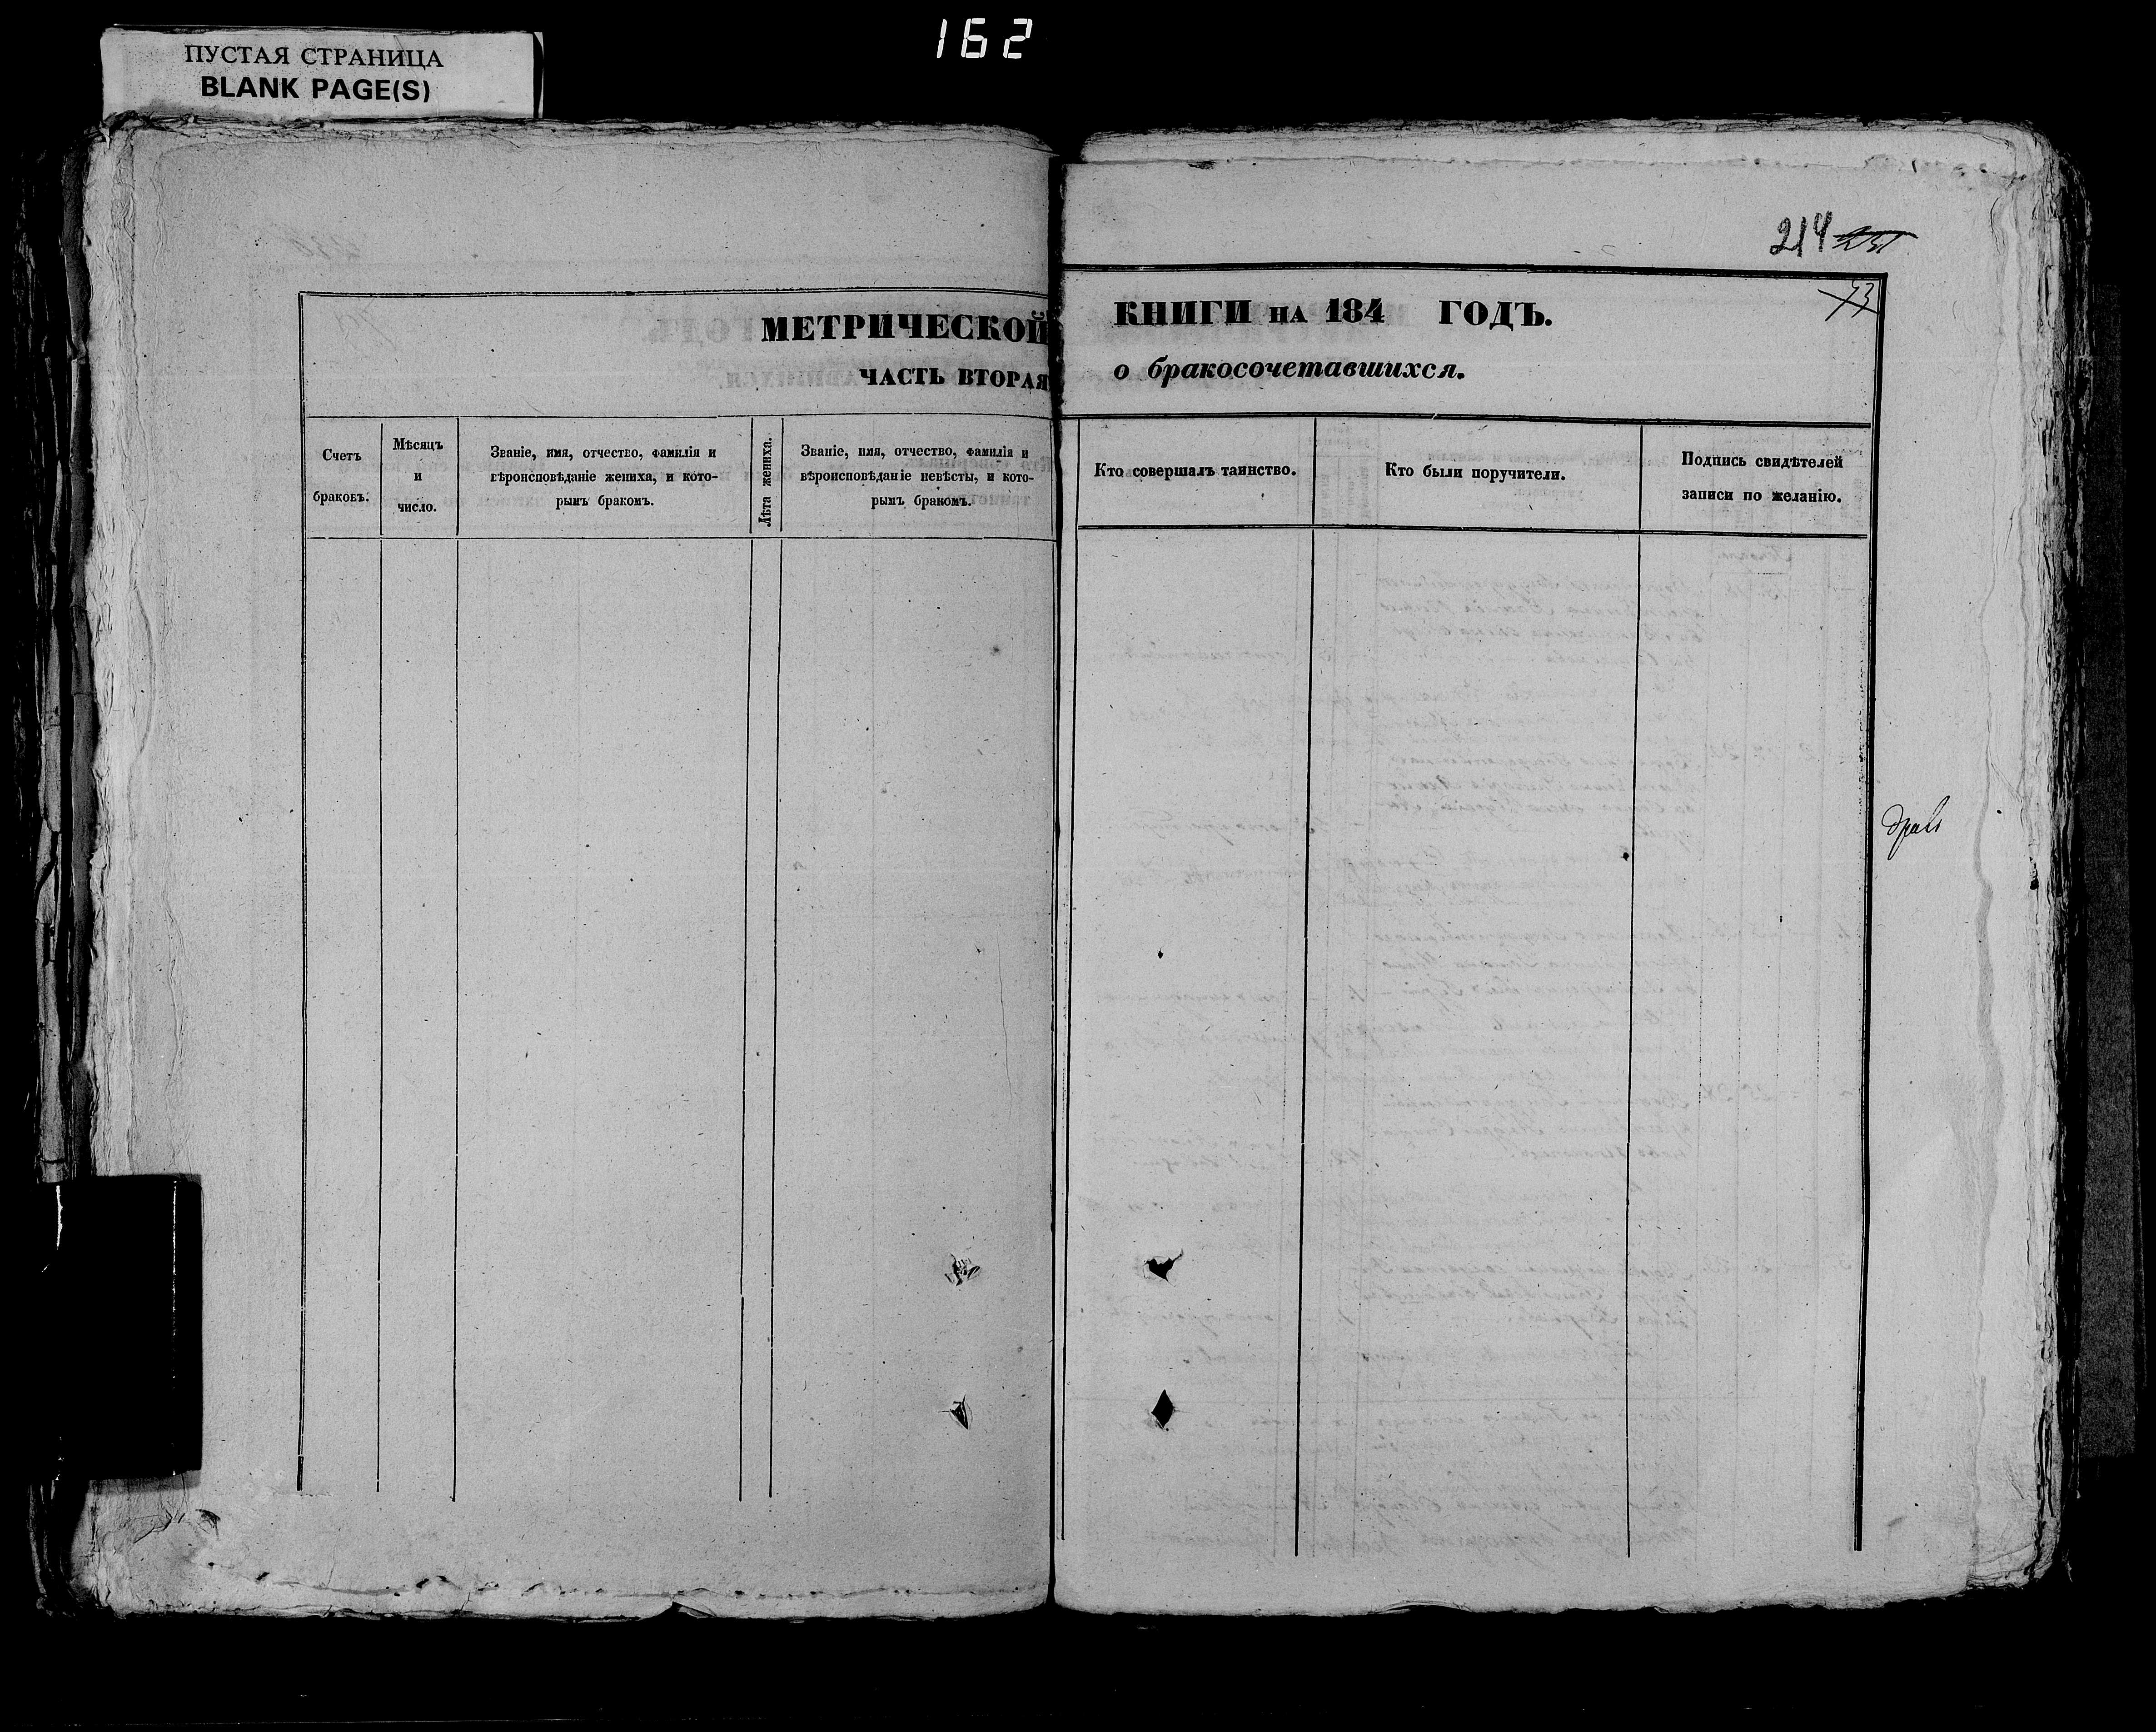 162
ПУСТАЯ СТРАНИЦА
BLANK PAGE(S)
214
МЕТРИЧЕСКОЙ КНИГИ НА 184 ГОДЪ.
ЧАСТЬ ВТОРАЯ о бракосочетавшихся.
Счетъ
браковъ.
Мѣсяцъ
и
число.
Званіе, имя, отчество, фамилія и
вѣроисповѣданіе жениха, и кото-
рымъ бракомъ.
Лѣта жениха.
Званіе, имя, отчество, фамилія и
вѣроисповѣданіе невѣсты, и кото-
рымъ бракомъ.
Кто совершалъ таинство.
Кто были поручители.
Подпись свидѣтелей
записи по желанію.